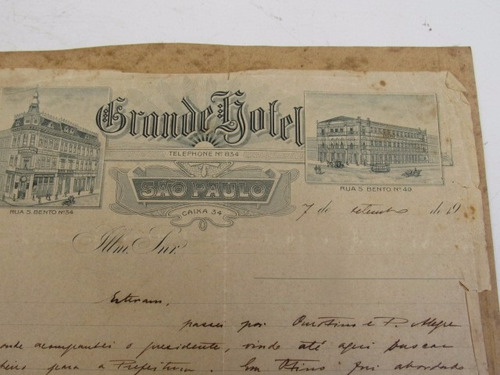 Grande Hotel
TELEPHONE Nº 834
SÃO PAULO
CAIXA 34
RUA S. BENTO Nº 34
RUA S. BENTO Nº 49
7 de setembro de 19
Illmo. Snr.
Esteram,
passei por Ouro Fino e P. Alegre
onde acompanhei o presidente, vindo até aqui buscar
para a Prefeitura. Em Ouro Fino fui abordado